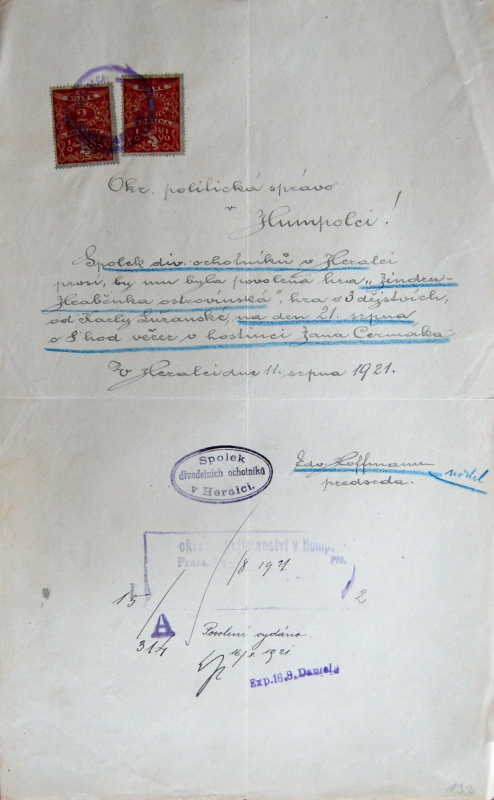 Okr. politická správo
v Humpolci!
Spolek div. ochotníků v Heralci
prosí, by mu byla povolena hra „Jindra-
Hraběnka ostrovínská", hra o 3 dějstvích,
od Karly Lužanské, na den 21. srpna
o 8 hod večer v hostinci Jana Čermáka.
V Heralci dne 11. srpna 1921.
Spolek
divadelních ochotníků
v Heralci.
Edv. Hoffmann
předseda.
v Humpo
Praes.
/8. 1921
15
A
314
2
Povolení vydáno.
1921
Exp. 16. 8. Daniela
133